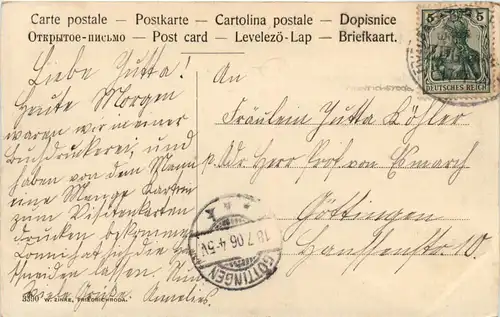 Carte postale – Postkarte – Cartolina postale – Dopisnice
Открытое-письмо – Post card – Levelező-Lap – Briefkaart.
5 5
DEUTSCHES REICH
Liebe Jutta!
Heute Morgen
waren wir in einer
Buchdruckerei, und
haben von dem Mann
eine Menge Karten
zum Visitenkarten
drucken bekommen.
hat sich die
schneiden lassen. Nun
Viele Grüße. Annelies.
An
Fräulein Jutta Köhler
p. Adr Herr Prof von Esmarch
Göttingen
Haussenstr. 10.
18.7.06.4-5N.
GÖTTINGEN
3390 W. ZINKE, FRIEDRICHRODA.